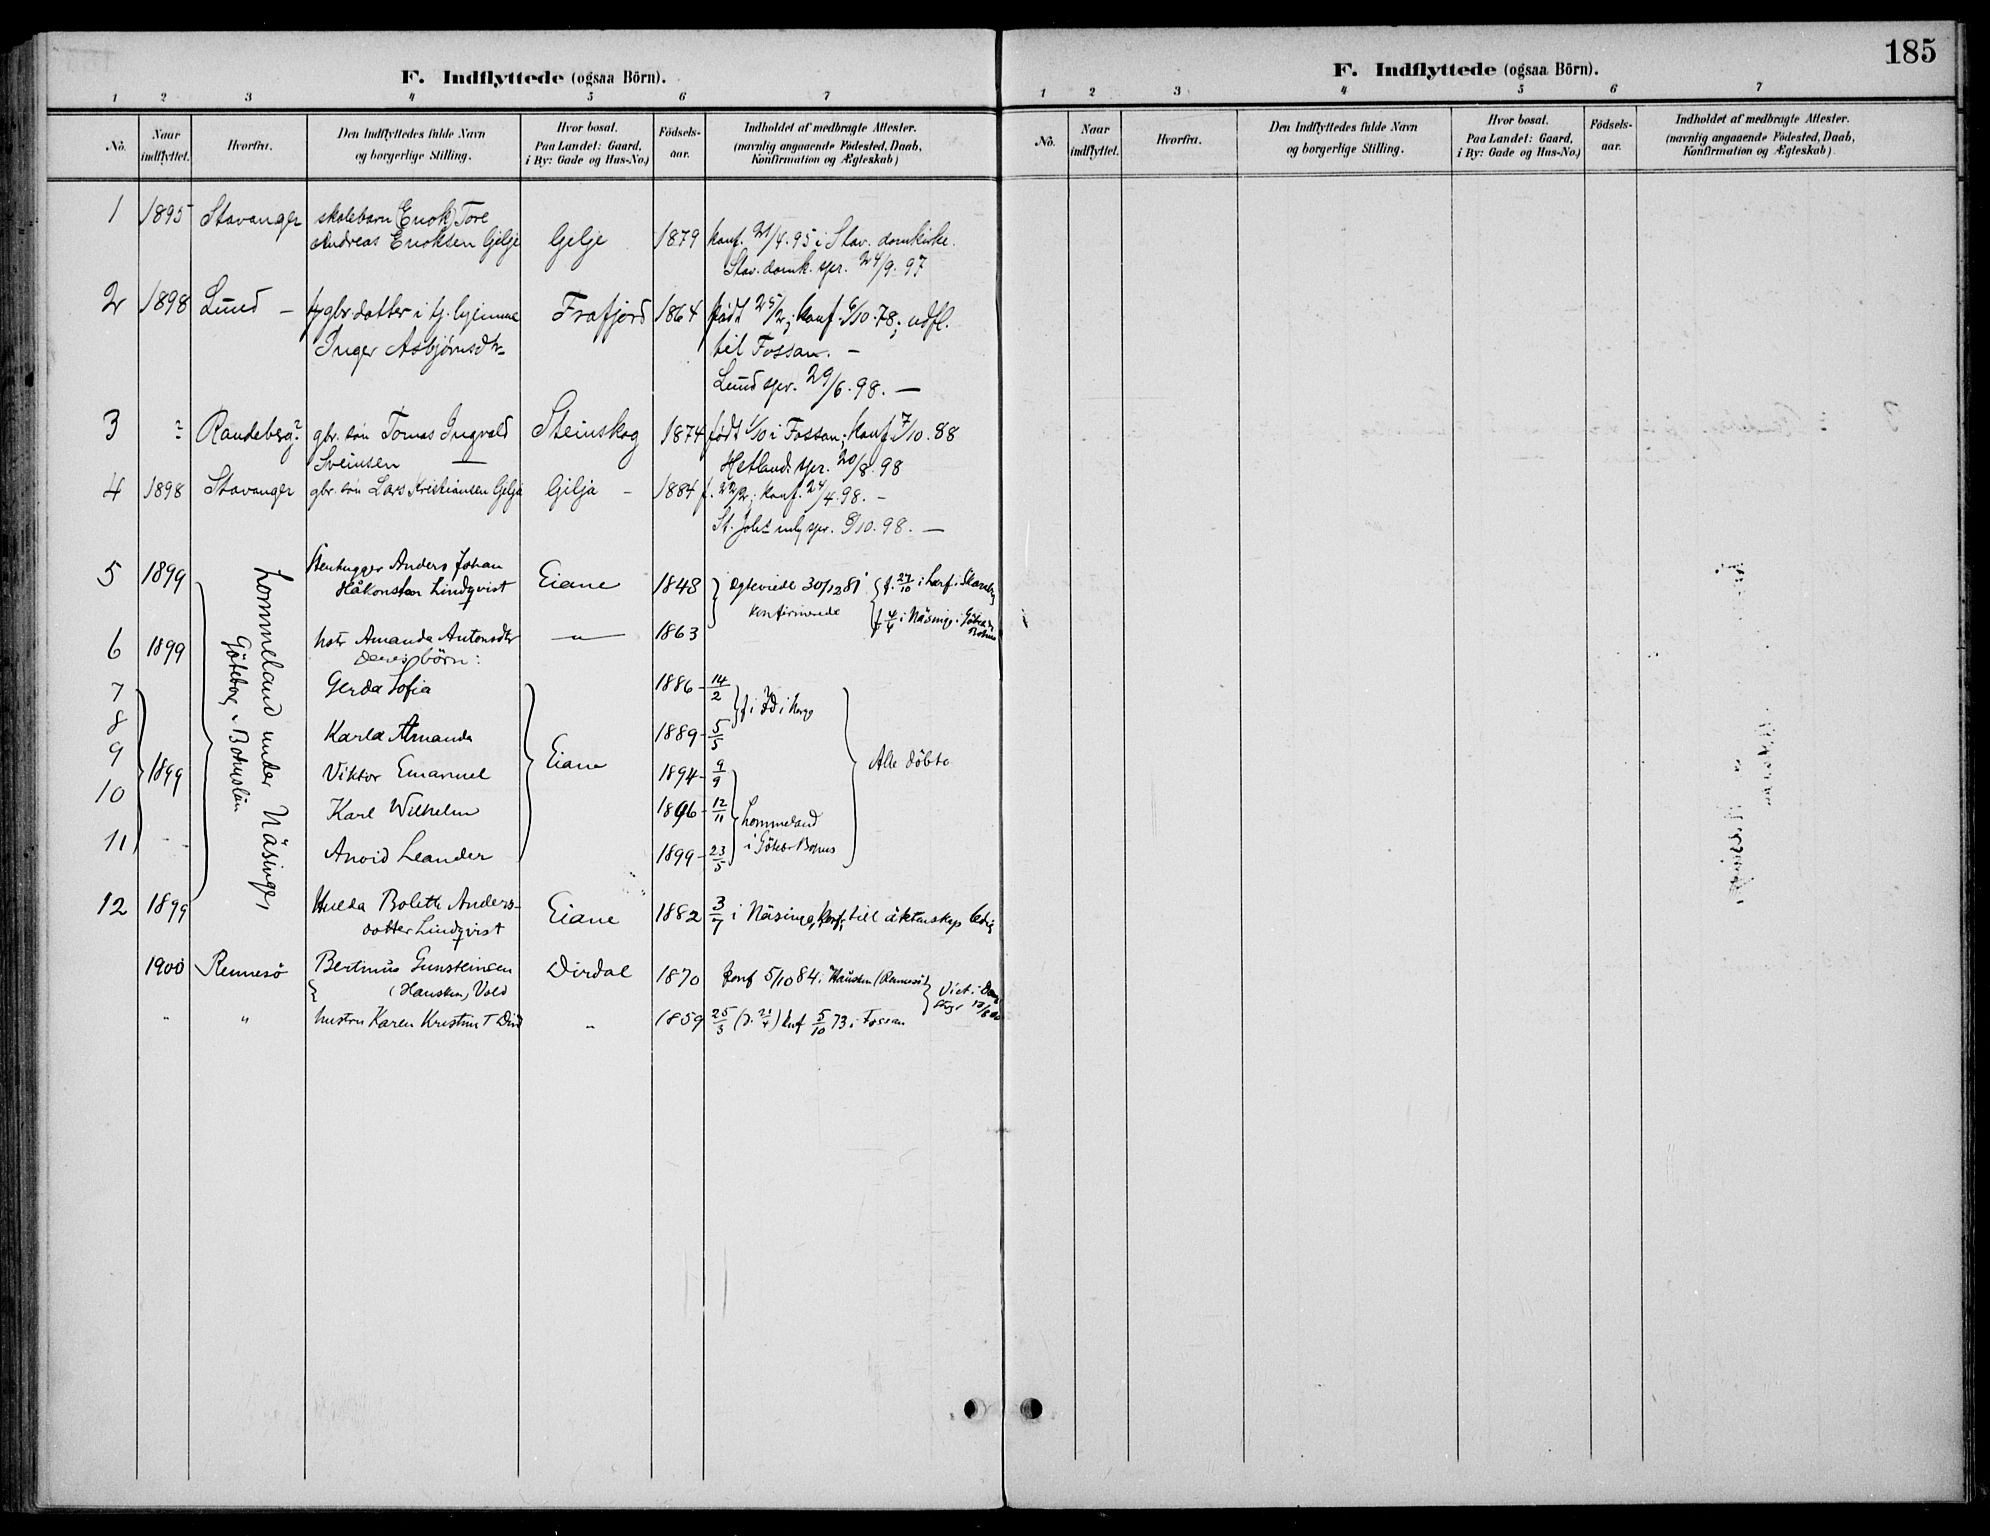 185
F. Indflyttede (ogsaa Börn).
1 2 3 4 5 6 7
No. Naar indflyttet. Hvorfra. Den Indflyttedes fulde Navn og borgerlige Stilling. Hvor bosat. Paa Landet: Gaard, i By: Gade og Hus-No.) Födsels-aar. Indholdet af medbragte Attester. (navnlig angaaende Födested, Daab, Konfirmation og Ægteskab)
1 1895 Stavanger skolebarn (Enok) Tore
Andreas Enoksen Gilje Gilje 1879 konf. 21/4.95 i Stav. domkirke.
Stav. domk. spr. 24/9.97
2 1898 Lund – gbr.datter i tj. hjemme Frafjord 1864 født 25/2; konf. 6/10.78; udfl.
Inger Asbjørnsdtr til Fossan. –
Lund spr. 29/6.98. –
3 " Randeberg? gbr. søn Tomas Ingvald Steinskog 1874 født 1/10 i Fossan; konf. 7/10.88
Sveinsen – Hetland spr. 20/8.98
4 1898 Stavanger gbr. søn Lars Kristiansen Gilja Gilja – 1884 f. 22/2; konf. 24/4.98. –
St. spr. 8/10.98. –
5 1899 Lommeland under Näsinge, Göteborg o. Bohuslän Stenhugger Anders Johan
Håkonsson Lindqvist Eiane 1843 Ægteviede 30/12 81 f. 27/10 i
konfirmerede f 4/4 i Näsinge i Göteb. o. Bohus
6 1899 hstr Amanda Antonsdtr –"– 1863
Deres börn:
7 Gerda Sofia 1886 – 14/2 f i Id i Norge
8 Karla Amanda 1889 – 5/5
9 1899 Viktor Emanuel Eiane 1894 – 9/9 Alle döbte
10 Karl Wilhelm 1896 – 12/11 Lommeland
11 Arvid Leander 1899 – 23/5 i Göteb. Bohus
12 1899 Hulda Bolette Anders-
dotter Lindqvist Eiane 1882 3/7 i Näsinge, konf., till äktenskap ledig
1900 Rennesö Bertinus Gunsteinsen Dirdal 1870 konf 5/10 84 i Hausken (Rennesö)
(Hausken) Vold
" " hustru Karen Kristine T Dird " 1859 25/3 (d. 21/4) knf 5/10 73 i Fossan
F. Indflyttede (ogsaa Börn).
1 2 3 4 5 6 7
No. Naar indflyttet. Hvorfra. Den Indflyttedes fulde Navn og borgerlige Stilling. Hvor bosat. Paa Landet: Gaard, i By: Gade og Hus-No.) Födsels-aar. Indholdet af medbragte Attester. (navnlig angaaende Födested, Daab, Konfirmation og Ægteskab).